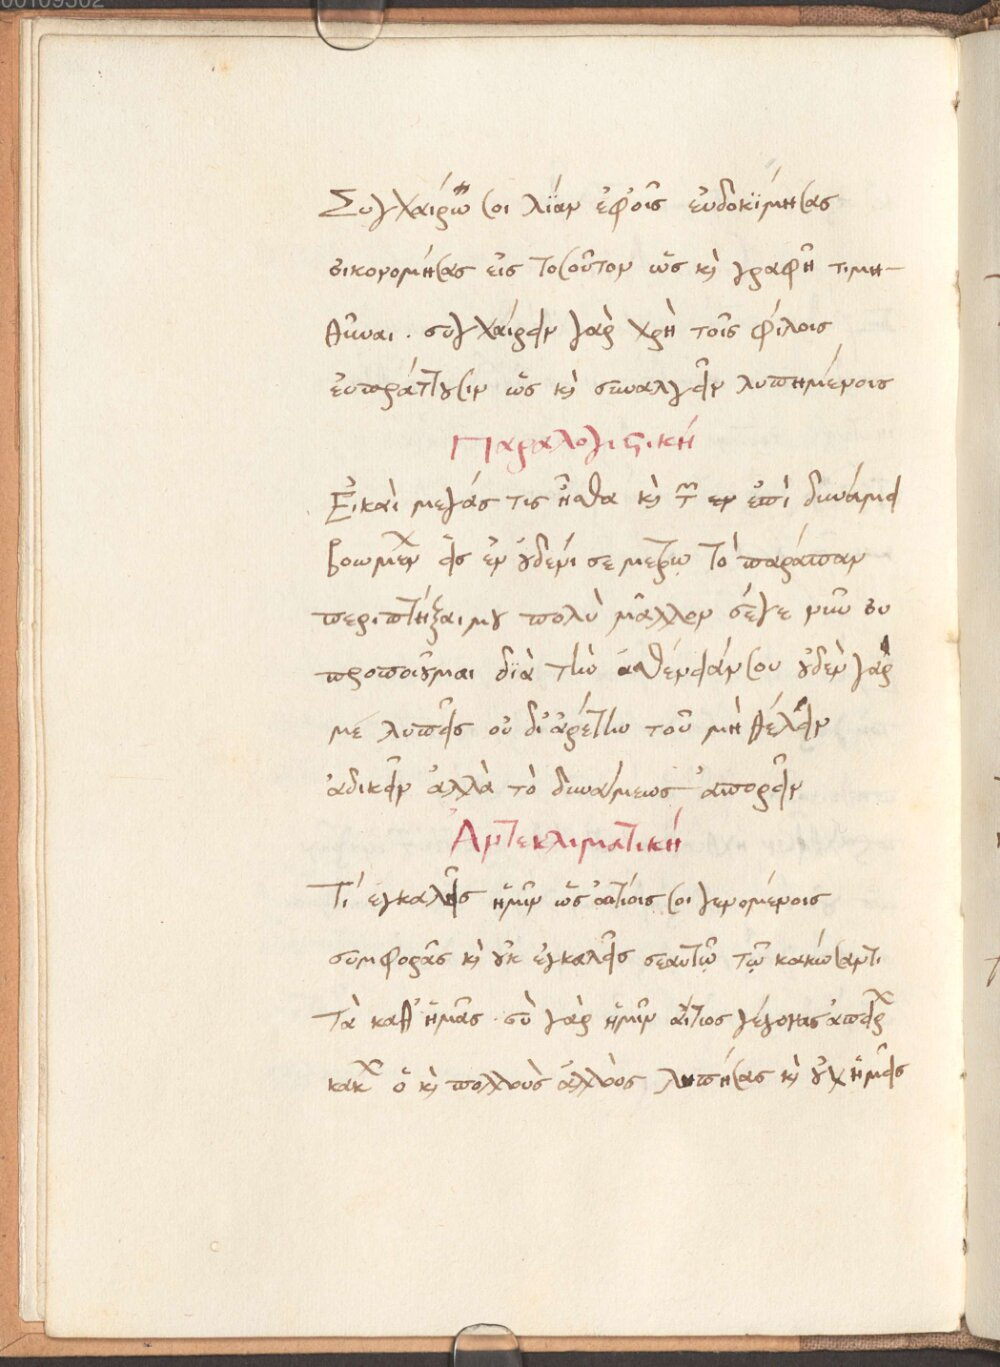 00109302
Συγχαίρω σοι λίαν ἐφοῖς εὐδοκϊμήσας
οἰκονομήσας εἰς τοσοῦτον ὥς κὶ γραφῆ τιμη-
θῆναι . συγχαίρειν γὰρ χρὴ τοῖς φίλοις
εὐπράττουσιν ὥς κὶ συναλγεῖν λυπημένοις
Παραλογιστική
Εἰκαὶ μεγάς τις ἦσθα κὶ ἐπὶ δυνάμει
ἐν οὐδενι σε τὸ παράπαν
μου πολὺ μᾶλλον σέγε νῦν ου
προποιοῦμαι δϊὰ τὴν ἀσθένειάν σου οὐδὲν γὰρ
με λυπεῖς οὐ δι ἀρέτην τοῦ μὴ θέλειν
ἀδικεῖν ἀλλὰ τὸ δυνάμεως ἀπορεῖν
Ἀντεκλιματική
Τί εγκαλεῖς ἡμῖν ὥς αἰτίοις σοι γενομένοις
συμφορᾶς κὶ οὐκ ἐγκαλεῖς σεαυτῷ τῷ κακώσαντι
τὰ καθ ἡμᾶς . σὺ γὰρ ἡμῖν αἴτιος γέγονας
κακ ὁ κὶ πολλοὺς ἄλλοὺς λυπήσας κὶ οὐχ ἡμεῖς